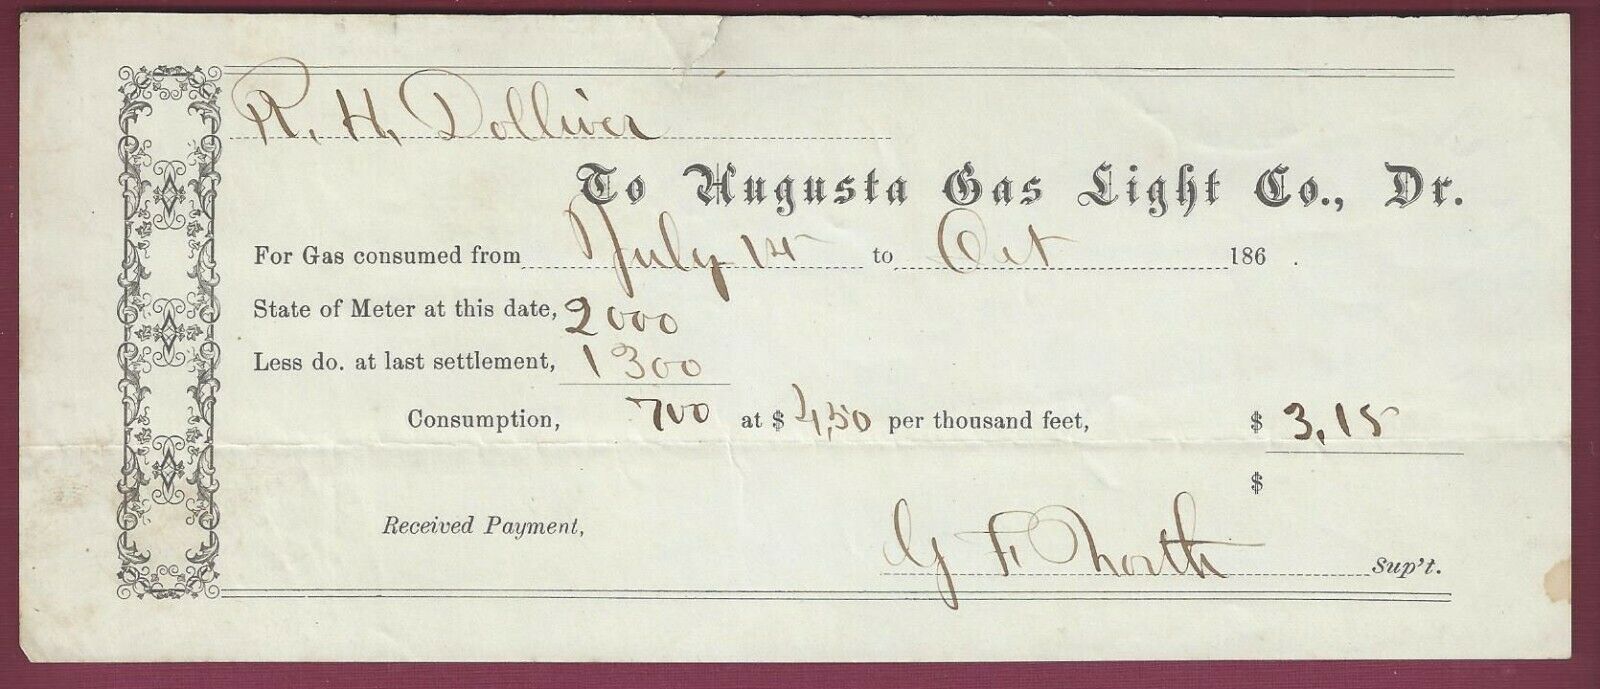 R. H. Dolliver
To Augusta Gas Light Co., Dr.
For Gas consumed from July 14 to Oct 186 .
State of Meter at this date, 2000
Less do. at last settlement, 1300
Consumption, 700 at $ 4,50 per thousand feet, $ 3,15
$
Received Payment,
G F North Sup't.